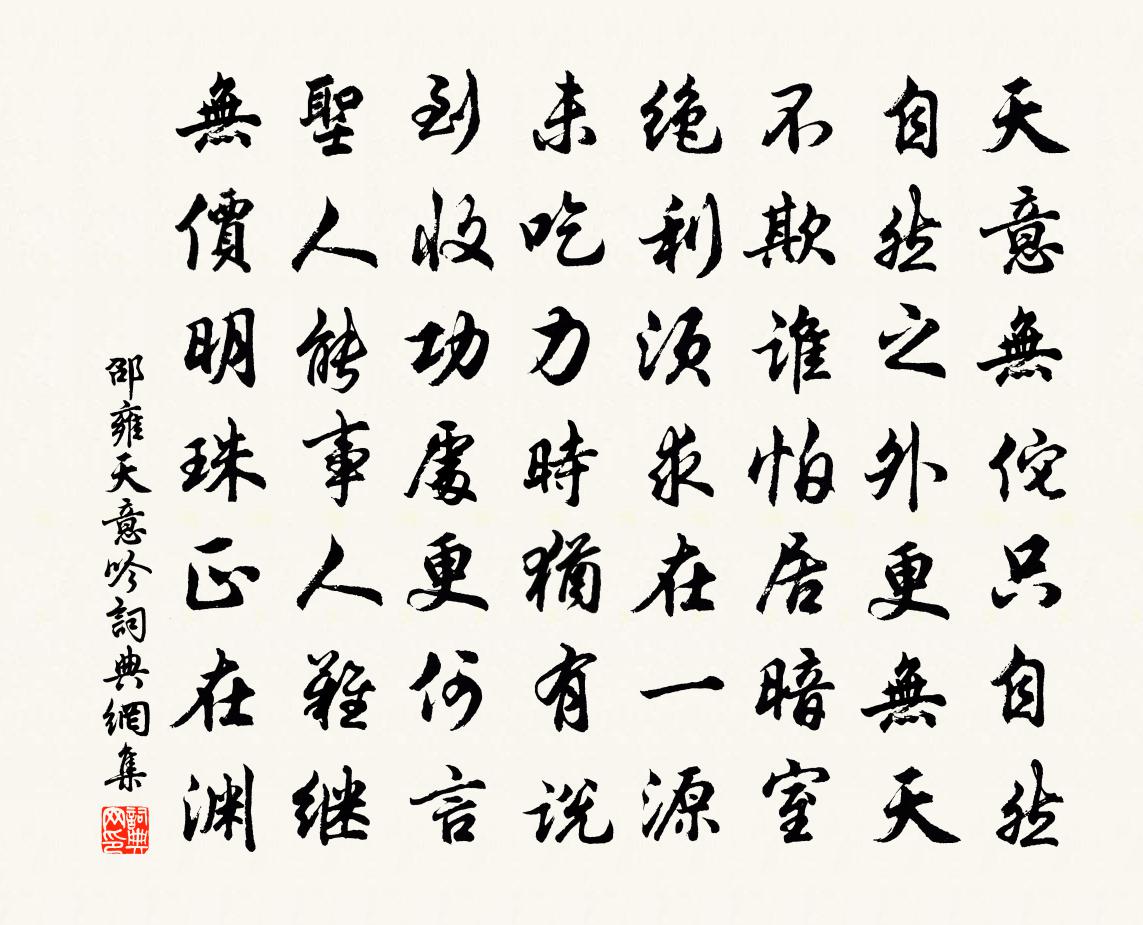 天意無佗只自然
自然之外更無天
不欺誰怕居暗室
绝利須求在一源
未吃力時猶有説
到收功處更何言
聖人能事人難继
無價明珠正在渊
邵雍天意吟詞典網集
詞典网印